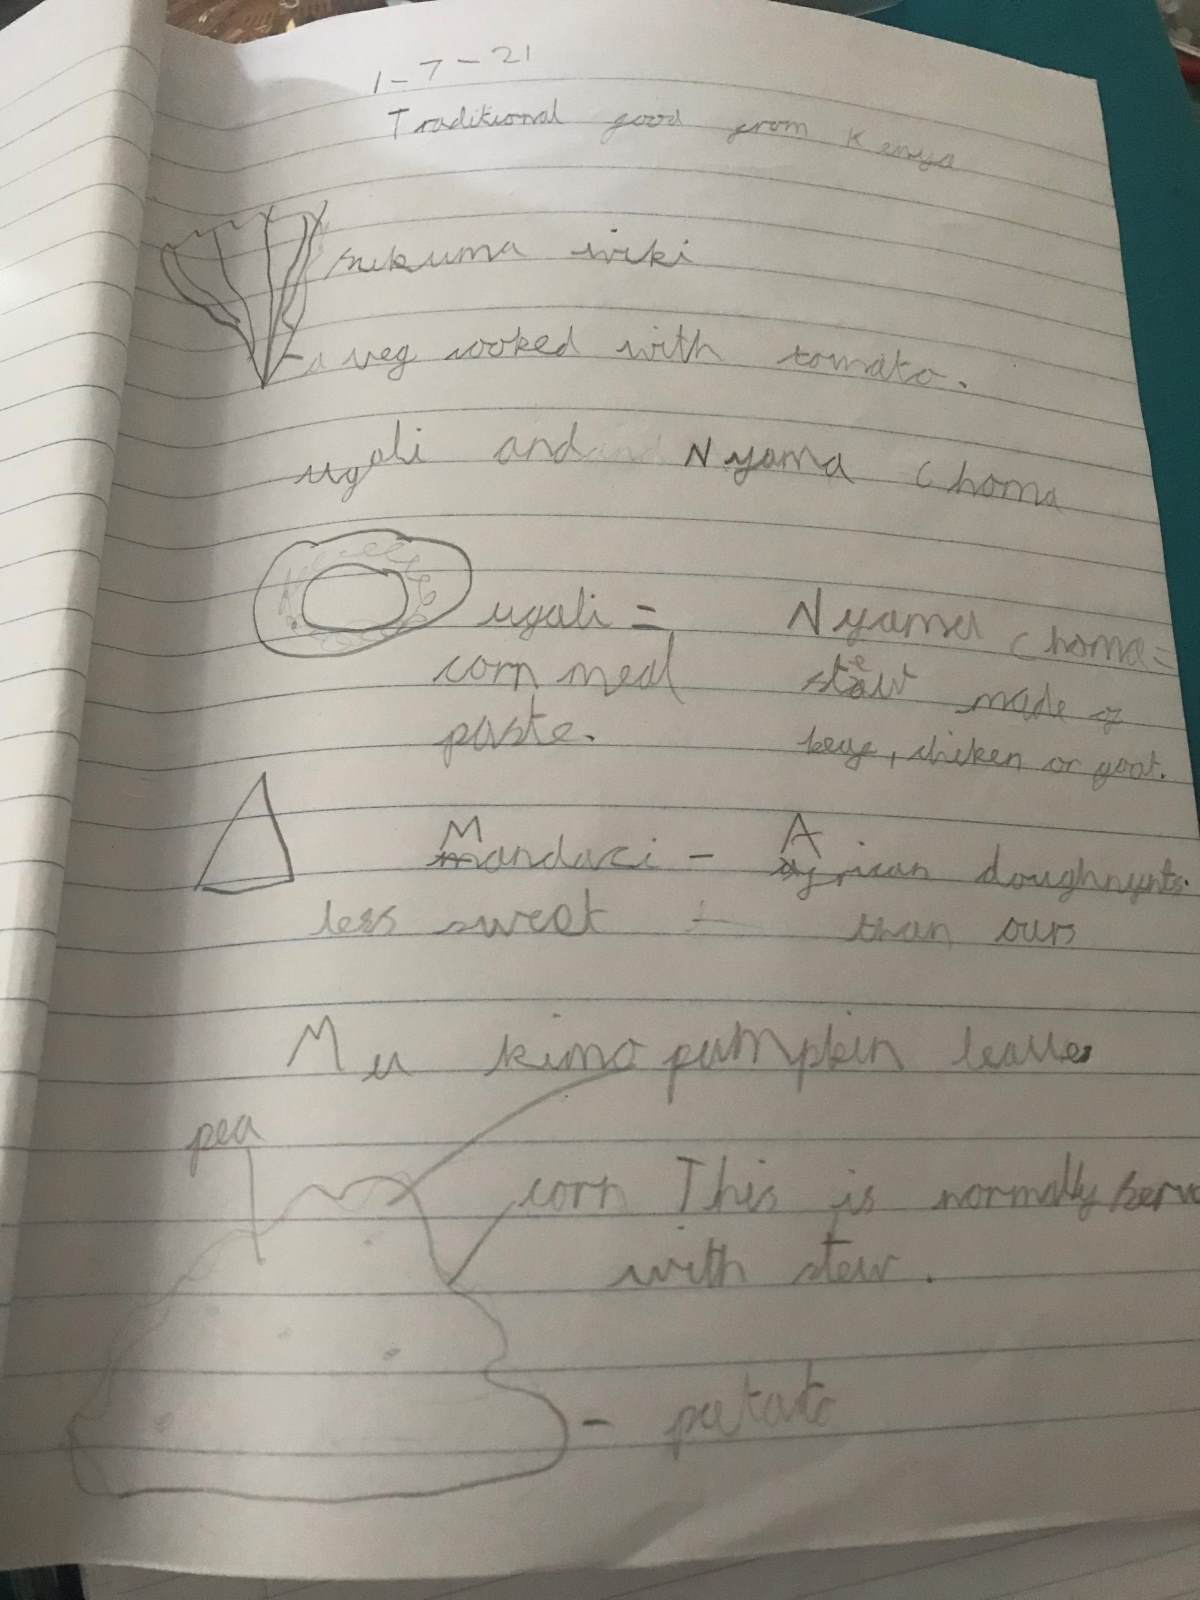 1-7-21
Traditional food from Kenya
sukuma wiki
- a veg cooked with tomato.
ugali and Nyama choma
ugali =
corn meal
paste.
Nyama choma =
stew made of
beef, chicken or goat.
Mandazi - African doughnuts.
less sweet than ours
Mu kimo pumpkin leaves
pea
corn This is normally serve
with stew.
- potato